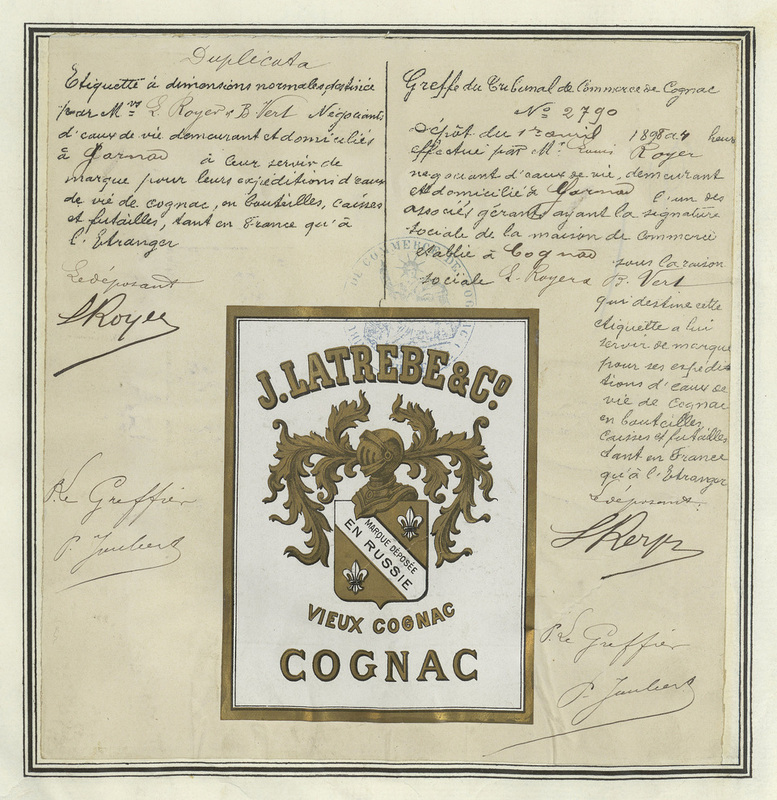 Duplicata
Etiquette à dimensions normales, destinée
par Mrs L. Royer & B. Vert Négociants
d'eaux de vie demeurant et domiciliés
à Jarnac à leur servir de
marque pour leurs expéditions d'eaux
de vie de cognac, en bouteilles, caisses
et futailles, tant en France qu'à
l'Etranger
Le déposant
LRoyer
P. Le Greffier
P. Joubert
Greffe du Tribunal de Commerce de Cognac
No 2790
Dépôt du 1r avril 1898 à 4 heures
effectué par Mr Louis Royer
négociant d'eaux de vie, demeurant
et domicilié à Jarnac l'un des
associés gérants ayant la signature
sociale de la maison de commerce
établie à Cognac sous la raison
sociale L. Royer & B. Vert
qui destine cette
étiquette a lui
servir de marque
pour ses expédi
tions d'eaux de
vie de Cognac
en bouteilles,
caisses et futailles
tant en France
qu'à l'Etranger
Le déposant.
LRoyer
P. Le Greffier
P. Joubert
DE COMMERCE DE COGNAC
J. LATREBE & Co
MARQUE DÉPOSÉE
EN RUSSIE
VIEUX COGNAC
COGNAC